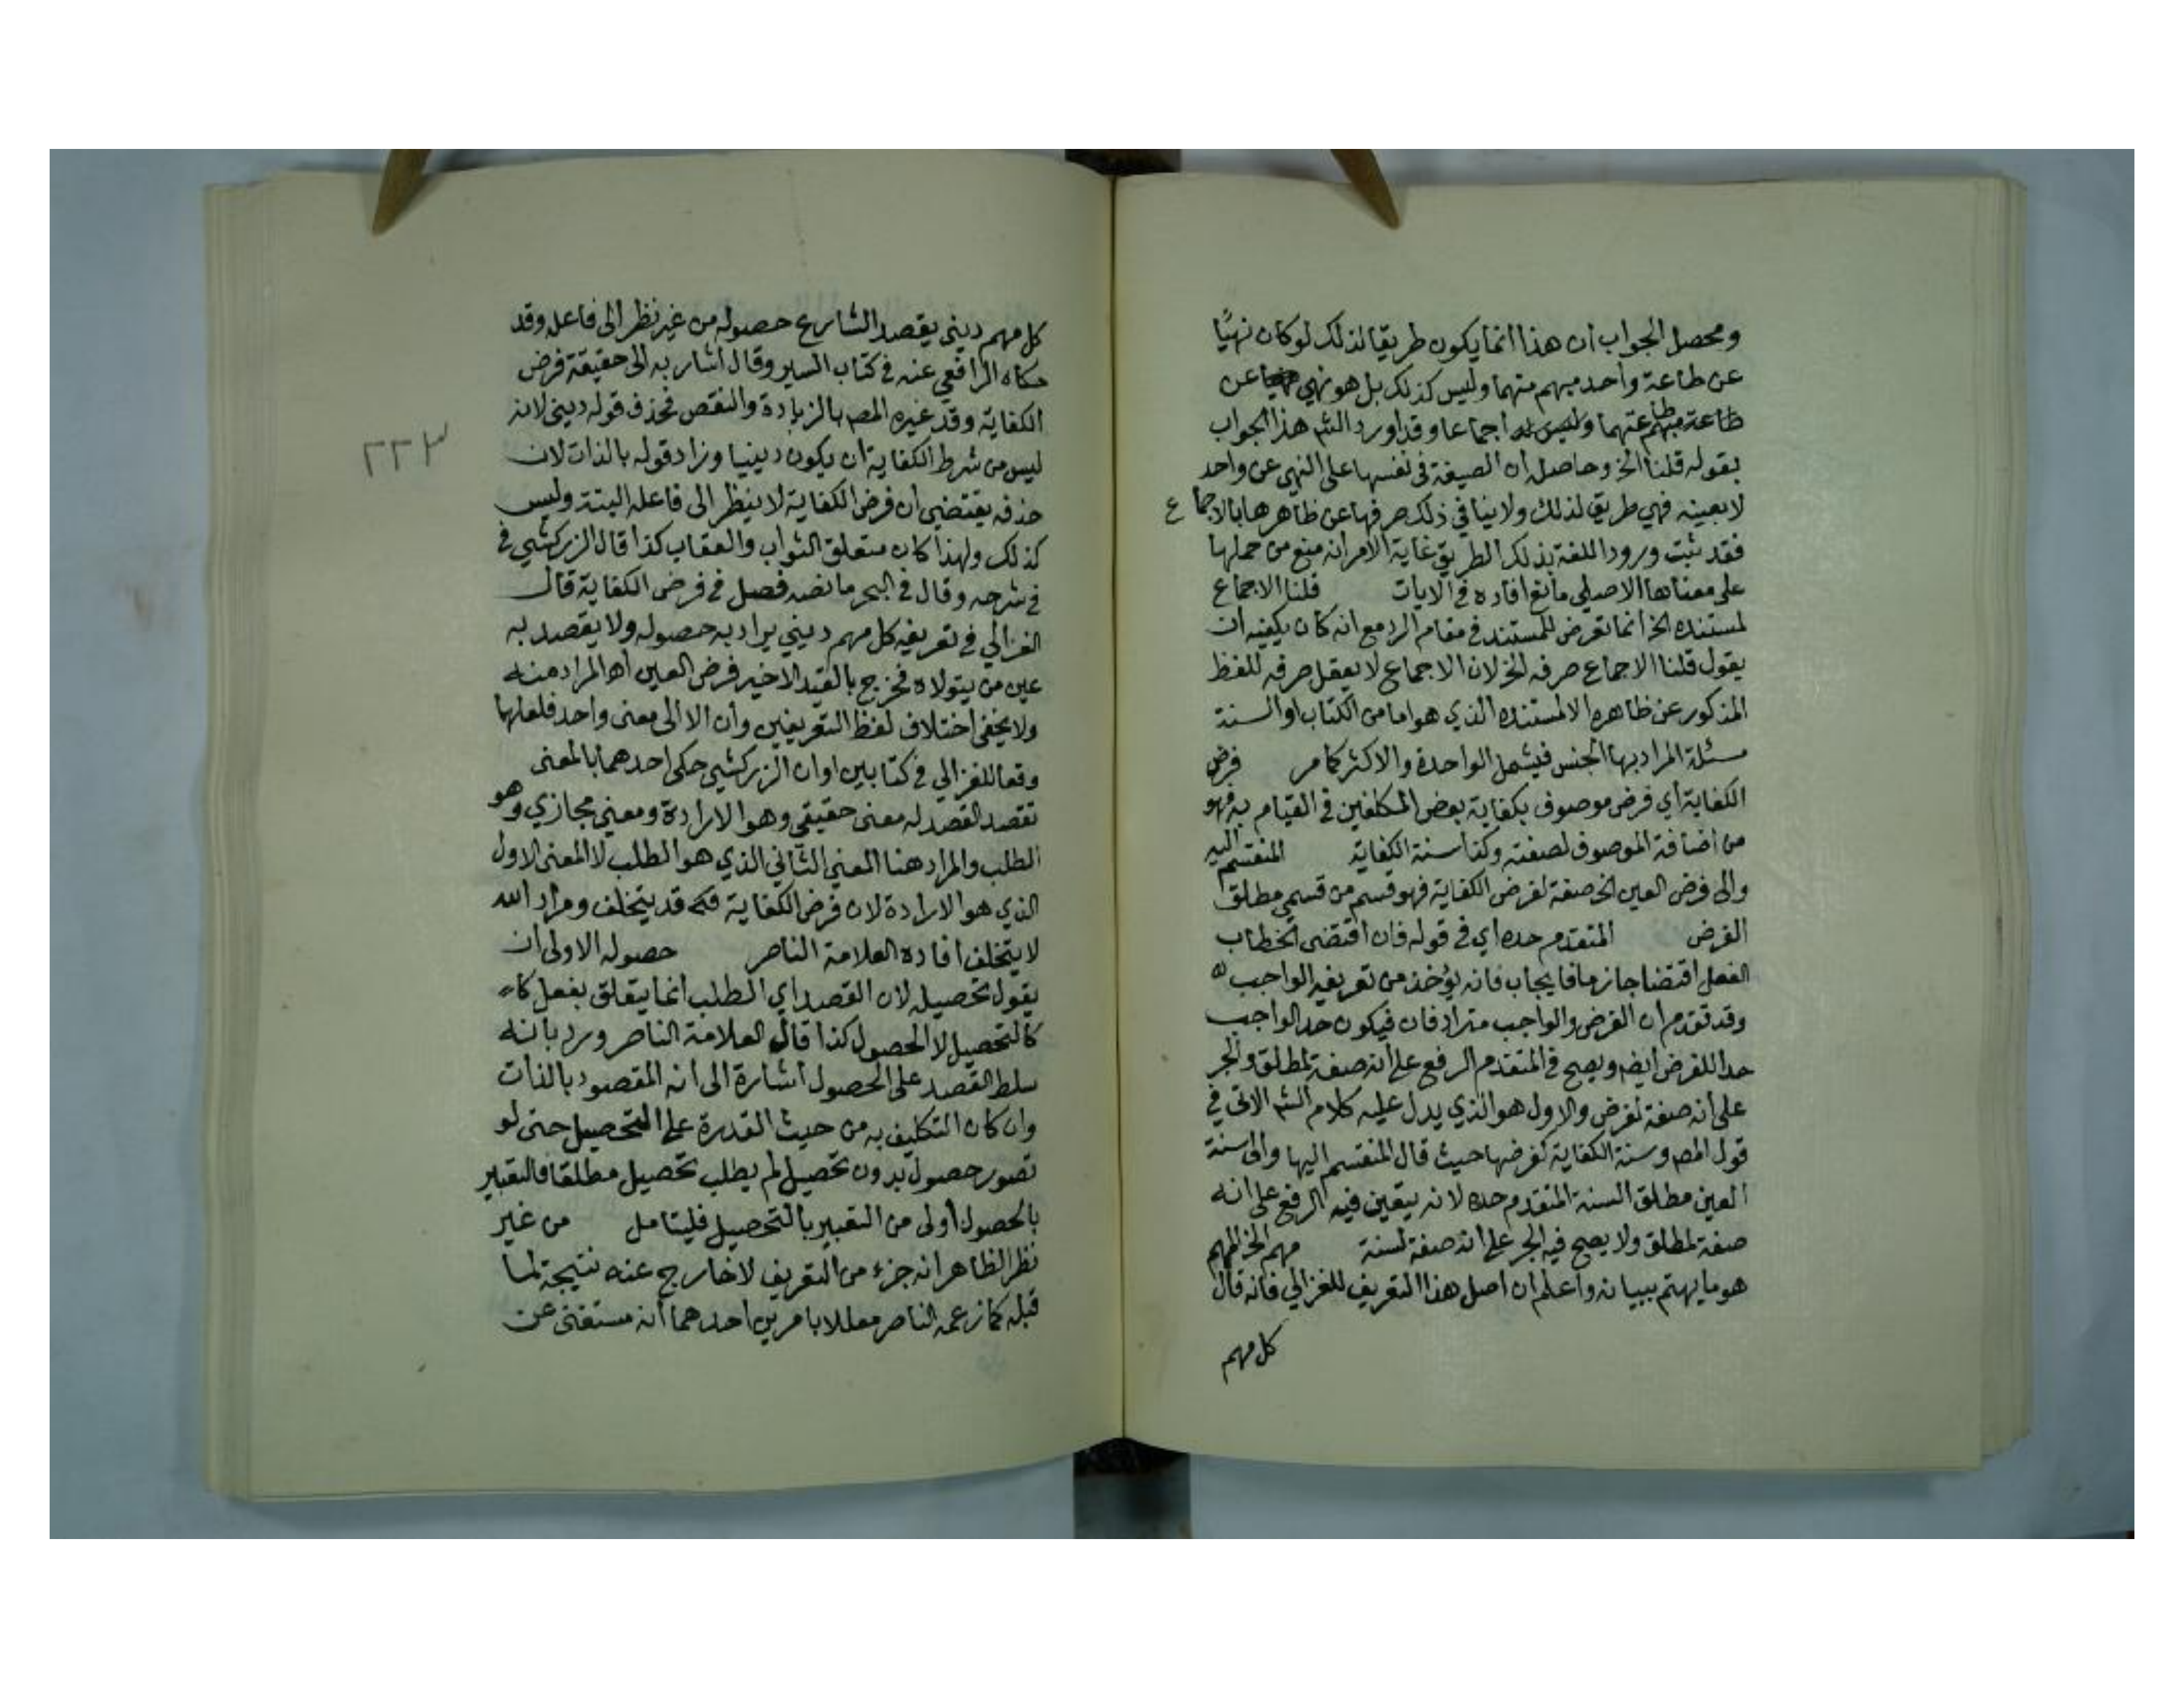 ومحصل الجواب ان هذا انما يكون طريقا لذلك لوكان نهيًا
عن طاعة واحد مبهم منهما وليس كذلك بل هو نهي عن
طاعة عتهما وليس اجماعا وقد اورد الشم هذا الجواب
بقوله قلنا الخ وحاصله ان الصيغة في نفسها على النهي عن واحد
لابعينه فهي طريق لذلك ولاينافي ذلك صرفها عن ظاهرها بالاجماع
فقد ثبت ورود اللغة بذلك الطريق غاية الامر انه منع من حملها
على معناها الاصلي مانع افاده في الايات قلنا الاجماع
لمستنده الخ انما تعرض للمستند في مقام الرد مع انه كان يكفيه ان
يقول قلنا الاجماع صرفه الخ لان الاجماع لا يعقل صرفه للفظ
المذكور عن ظاهره الا لمستنده الذي هو اما من الكتاب او السنة
مسئلة المراد بها الجنس فيشمل الواحدة والاكثر كما مر فرض
الكفاية اي فرض موصوف بكفاية بعض المكلفين في القيام به فهو
من اضافة الموصوف لصفته وكذا سنة الكفاية المنقسم اليه
والى فرض العين الخ صفة لفرض الكفاية فهو قسم من قسمي مطلق
الفرض المتقدم حده اي في قوله فان اقتضى الخطاب
الفعل اقتضا جازما فايجاب فانه يؤخذ من تعريفه الواجب
وقد تقدم ان الفرض والواجب مترادفان فيكون حد الواجب
حدا للفرض ايضم ويصح في المتقدم الرفع على انه صفة لمطلق والجر
على انه صفة لفرض والاول هو الذي يدل عليه كلام الشم الاتي في
قول المصم وسنة الكفاية كفرضها حيث قال المنقسم اليها والى سنة
العين مطلق السنة المتقدم حده لانه يتعين فيه الرفع على انه
صفة لمطلق ولا يصح فيه الجر على انه صفة لسنة مهم الخ المهم
هو ما يهتم ببيانه واعلم ان اصل هذا التعريف للغزالي فانه قال
كل مهم
كل مهم ديني يقصد الشارع حصوله من غير نظر الى فاعله وقد
حكاه الرافعي عنه في كتاب السير وقال اشار به الى حقيقة فرض
الكفاية وقد غيره المصم بالزيادة والنقص فحذف قوله ديني لانه
ليس من شرط الكفاية ان يكون دينيا وزاد قوله بالذات لان
حذفه يقتضي ان فرض الكفاية لا ينظر الى فاعله البتة وليس
كذلك ولهذا كان متعلق الثواب والعقاب كذا قال الزركشي في
في شرحه وقال في البحر ما نصه فصل في فرض الكفاية قال
الغزالي في تعريفه كل مهم ديني يراد به حصوله ولا يقصد به
عين من يتولاه فخرج بالقيد الاخير فرض العين اه المراد منه
ولا يخفى اختلاف لفظ التعريفين وان الا الى معنى واحد فلعلها
وقعا للغزالي في كتابين او ان الزركشي حكى احدهما بالمعنى
تقصد القصد له معنى حقيقي وهو الارادة ومعنى مجازي وهو
الطلب والمراد هنا المعنى الثاني الذي هو الطلب لا المعنى الاول
الذي هو الارادة لان فرض الكفاية قد يتخلف ومراد الله
لا يتخلف افاده العلامة الناصر حصوله الاولى ان
يقول تحصيله لان القصد اي الطلب انما يتعلق بفعل
كالتحصيل لا الحصول كذا قال العلامة الناصر ورد بانه
سلط القصد على الحصول اشارة الى انه المقصود بالذات
وان كان التكليف به من حيث القدرة على التحصيل حتى لو
تصور حصول بدون تحصيل لم يطلب تحصيل مطلقا فالتعبير
بالحصول اولى من التعبير بالتحصيل فليتامل من غير
نظر الظاهر انه جزء من التعريف لا خارج عنه نتيجة لما
قبله كما زعمه الناصر معللا بامرين احدهما انه مستغنى عن
٢٢٣